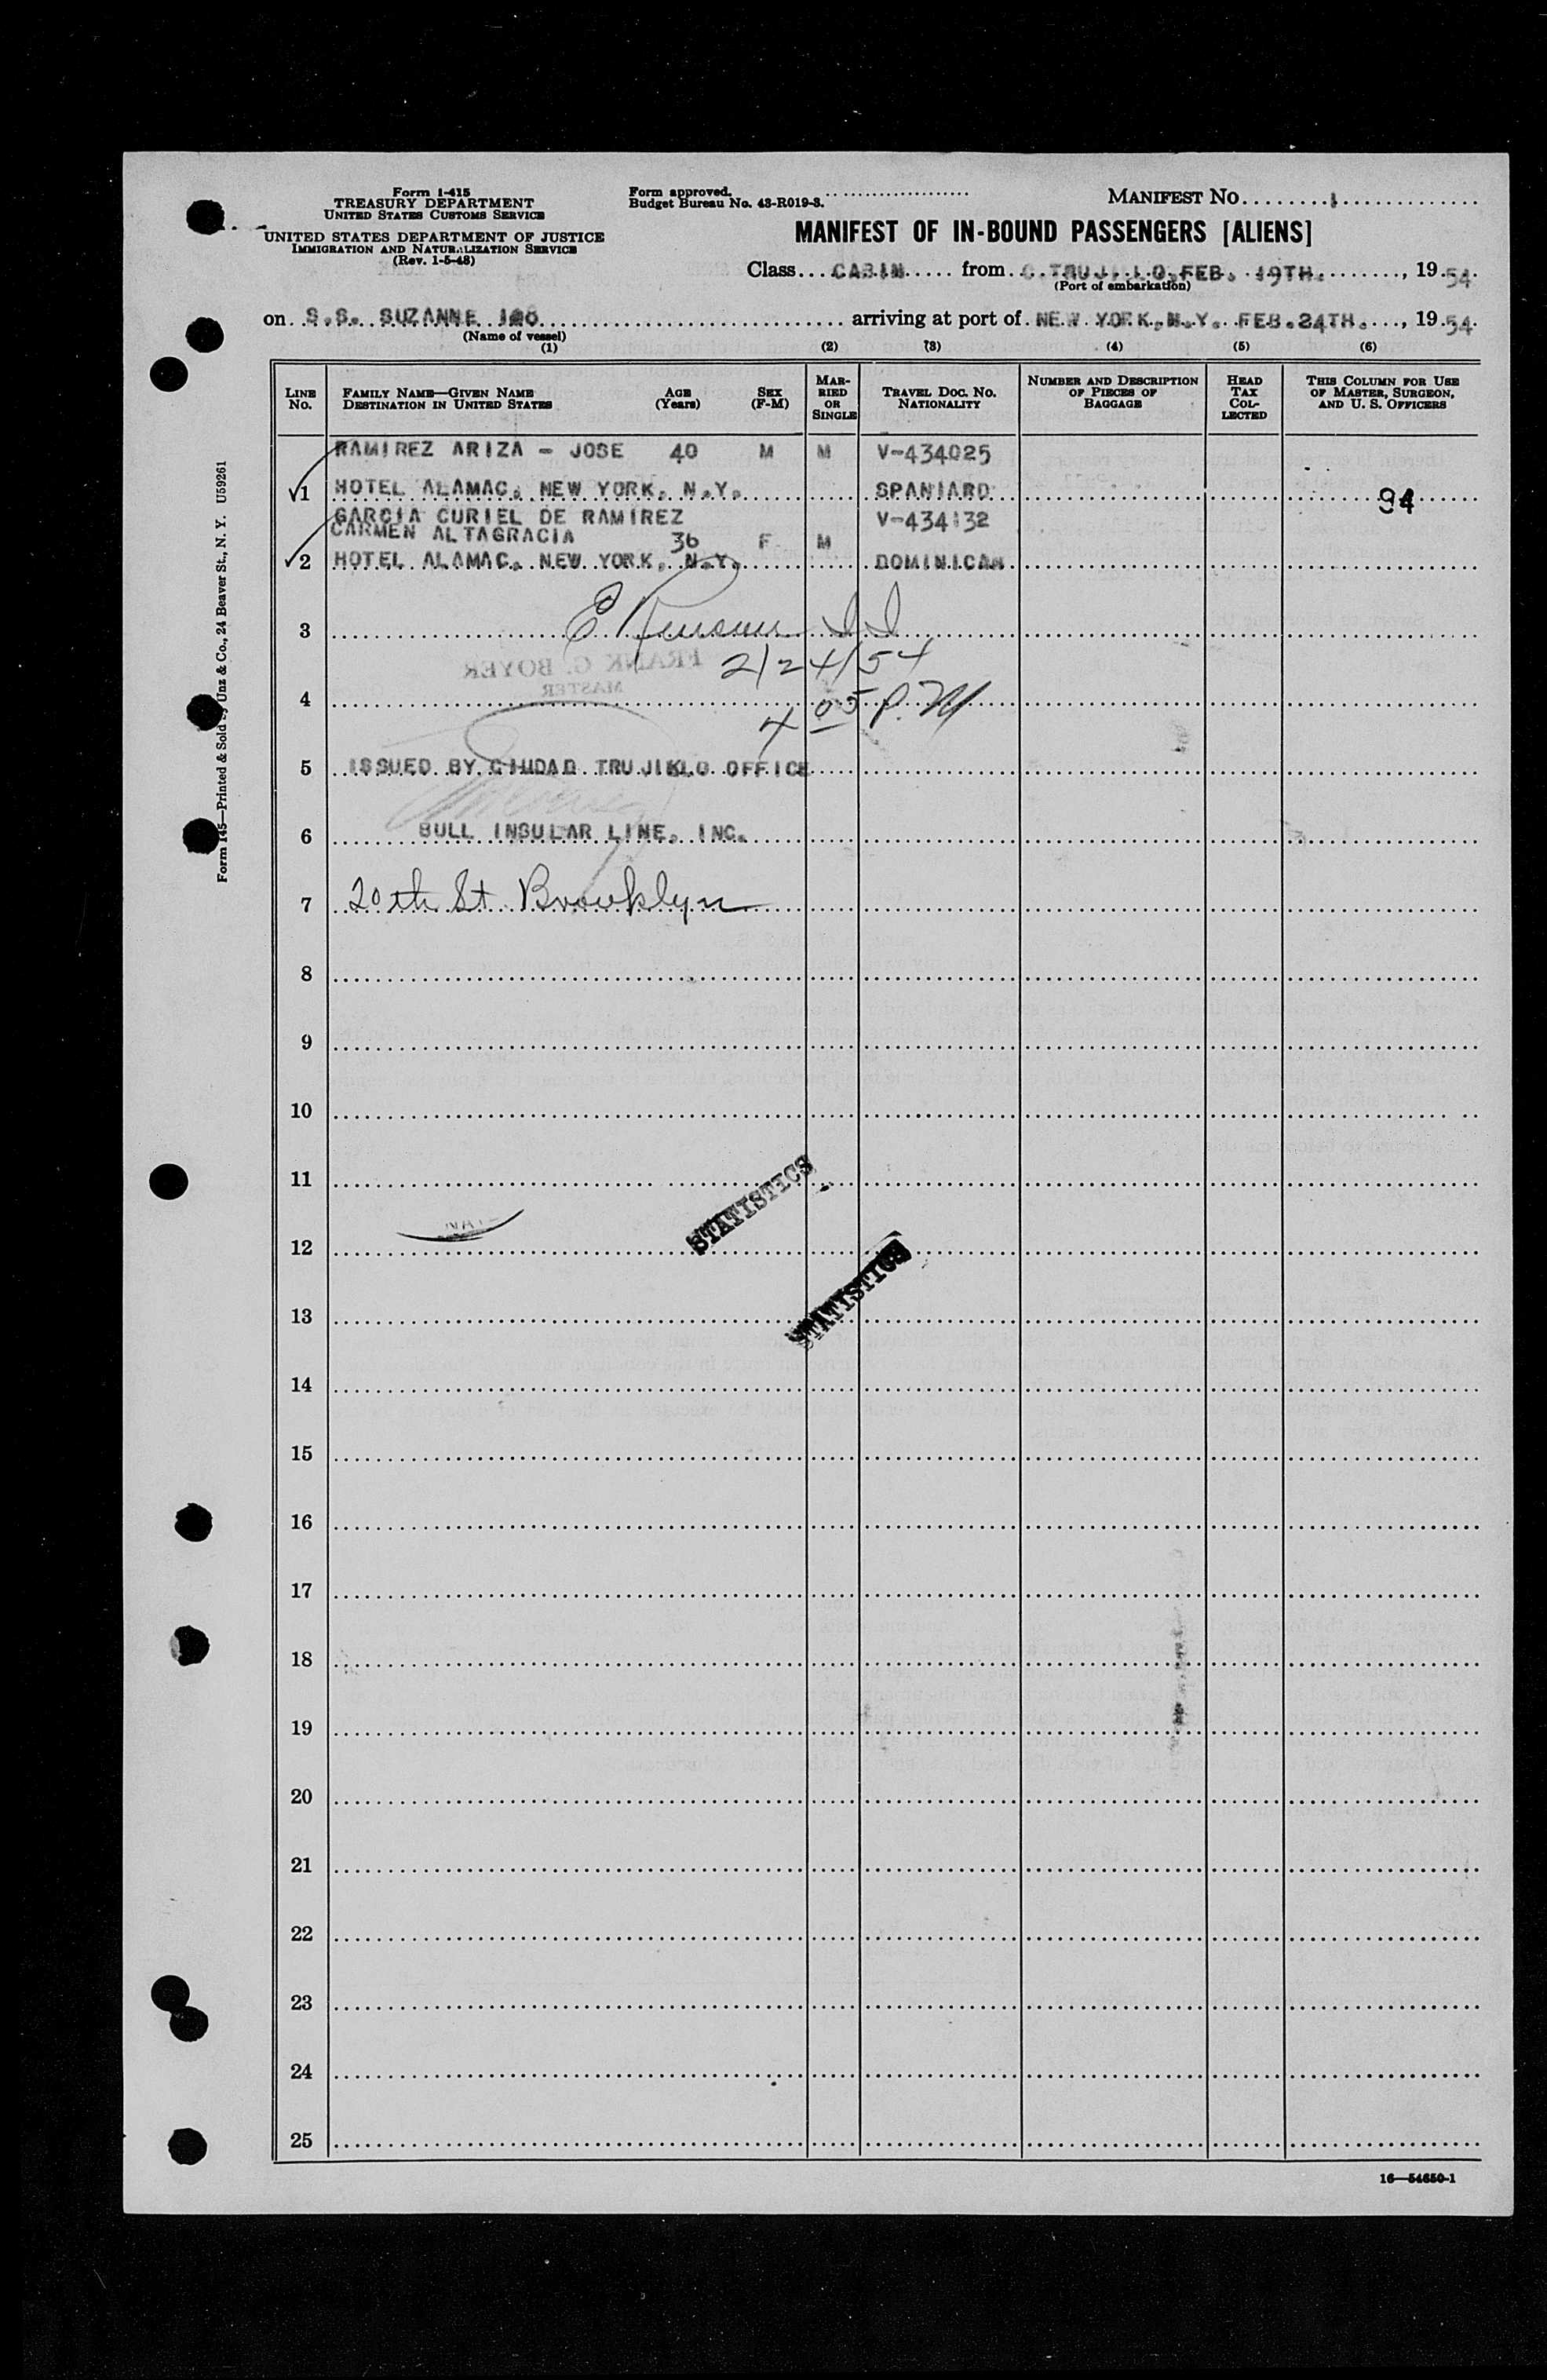 Form I-415
TREASURY DEPARTMENT
UNITED STATES CUSTOMS SERVICE
UNITED STATES DEPARTMENT OF JUSTICE
IMMIGRATION AND NATURALIZATION SERVICE
(Rev. 1-5-48)
Form approved.
Budget Bureau No. 43-R019-3.
MANIFEST NO. 1
MANIFEST OF IN-BOUND PASSENGERS [ALIENS]
Class CABIN from C.TRUJILLO,FEB. 19TH. , 19 54
(Port of embarkation)
on S.S. SUZANNE arriving at port of NEW YORK,N.Y. FEB.24TH. , 19 54
(Name of vessel)
(1) (2) (3) (4) (5) (6)
LINE NO. FAMILY NAME—GIVEN NAME DESTINATION IN UNITED STATES AGE (Years) SEX (F-M) MARRIED OR SINGLE TRAVEL DOC. NO. NATIONALITY NUMBER AND DESCRIPTION OF PIECES OF BAGGAGE HEAD TAX COLLECTED THIS COLUMN FOR USE OF MASTER, SURGEON, AND U. S. OFFICERS
RAMIREZ ARIZA - JOSE 40 M M V-434025
1 HOTEL ALAMAC, NEW YORK, N.Y. SPANIARD 94
GARCIA CURIEL DE RAMIREZ V-434132
CARMEN ALTAGRACIA 36 F M
2 HOTEL ALAMAC, NEW YORK, N.Y. DOMINICAN
3
FRANK G. BOYER 2/24/54
MASTER
4 4 05 P.M
5 ISSUED BY CIUDAD TRUJILLO OFFICE
6 BULL INSULAR LINE, INC.
7 20th St. Brooklyn
8
9
10
11
STATISTICS
12
STATISTICS
13
14
15
16
17
18
19
20
21
22
23
24
25
16—54650-1
Form 145—Printed & Sold by Unz & Co., 24 Beaver St., N. Y. U59261